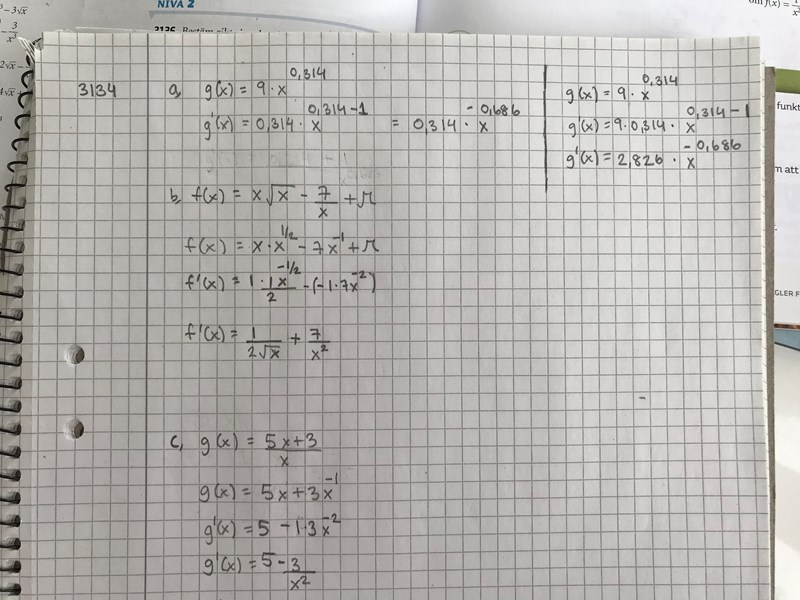 NIVÅ 2
3134
a, g(x) = 9·x^0,314
g'(x) = 0,314·x^0,314-1 = 0,314·x^-0,686
g(x) = 9·x^0,314
g'(x) = 9·0,314·x^0,314-1
g'(x) = 2,826·x^-0,686
b, f(x) = x√x - 7/x + π
f(x) = x·x^1/2 - 7x^-1 + π
f'(x) = 1·1x^-1/2/2 - (-1·7x^-2)
f'(x) = 1/2√x + 7/x^2
c, g(x) = 5x+3/x
g(x) = 5x+3x^-1
g'(x) = 5 - 1·3x^-2
g'(x) = 5 - 3/x^2